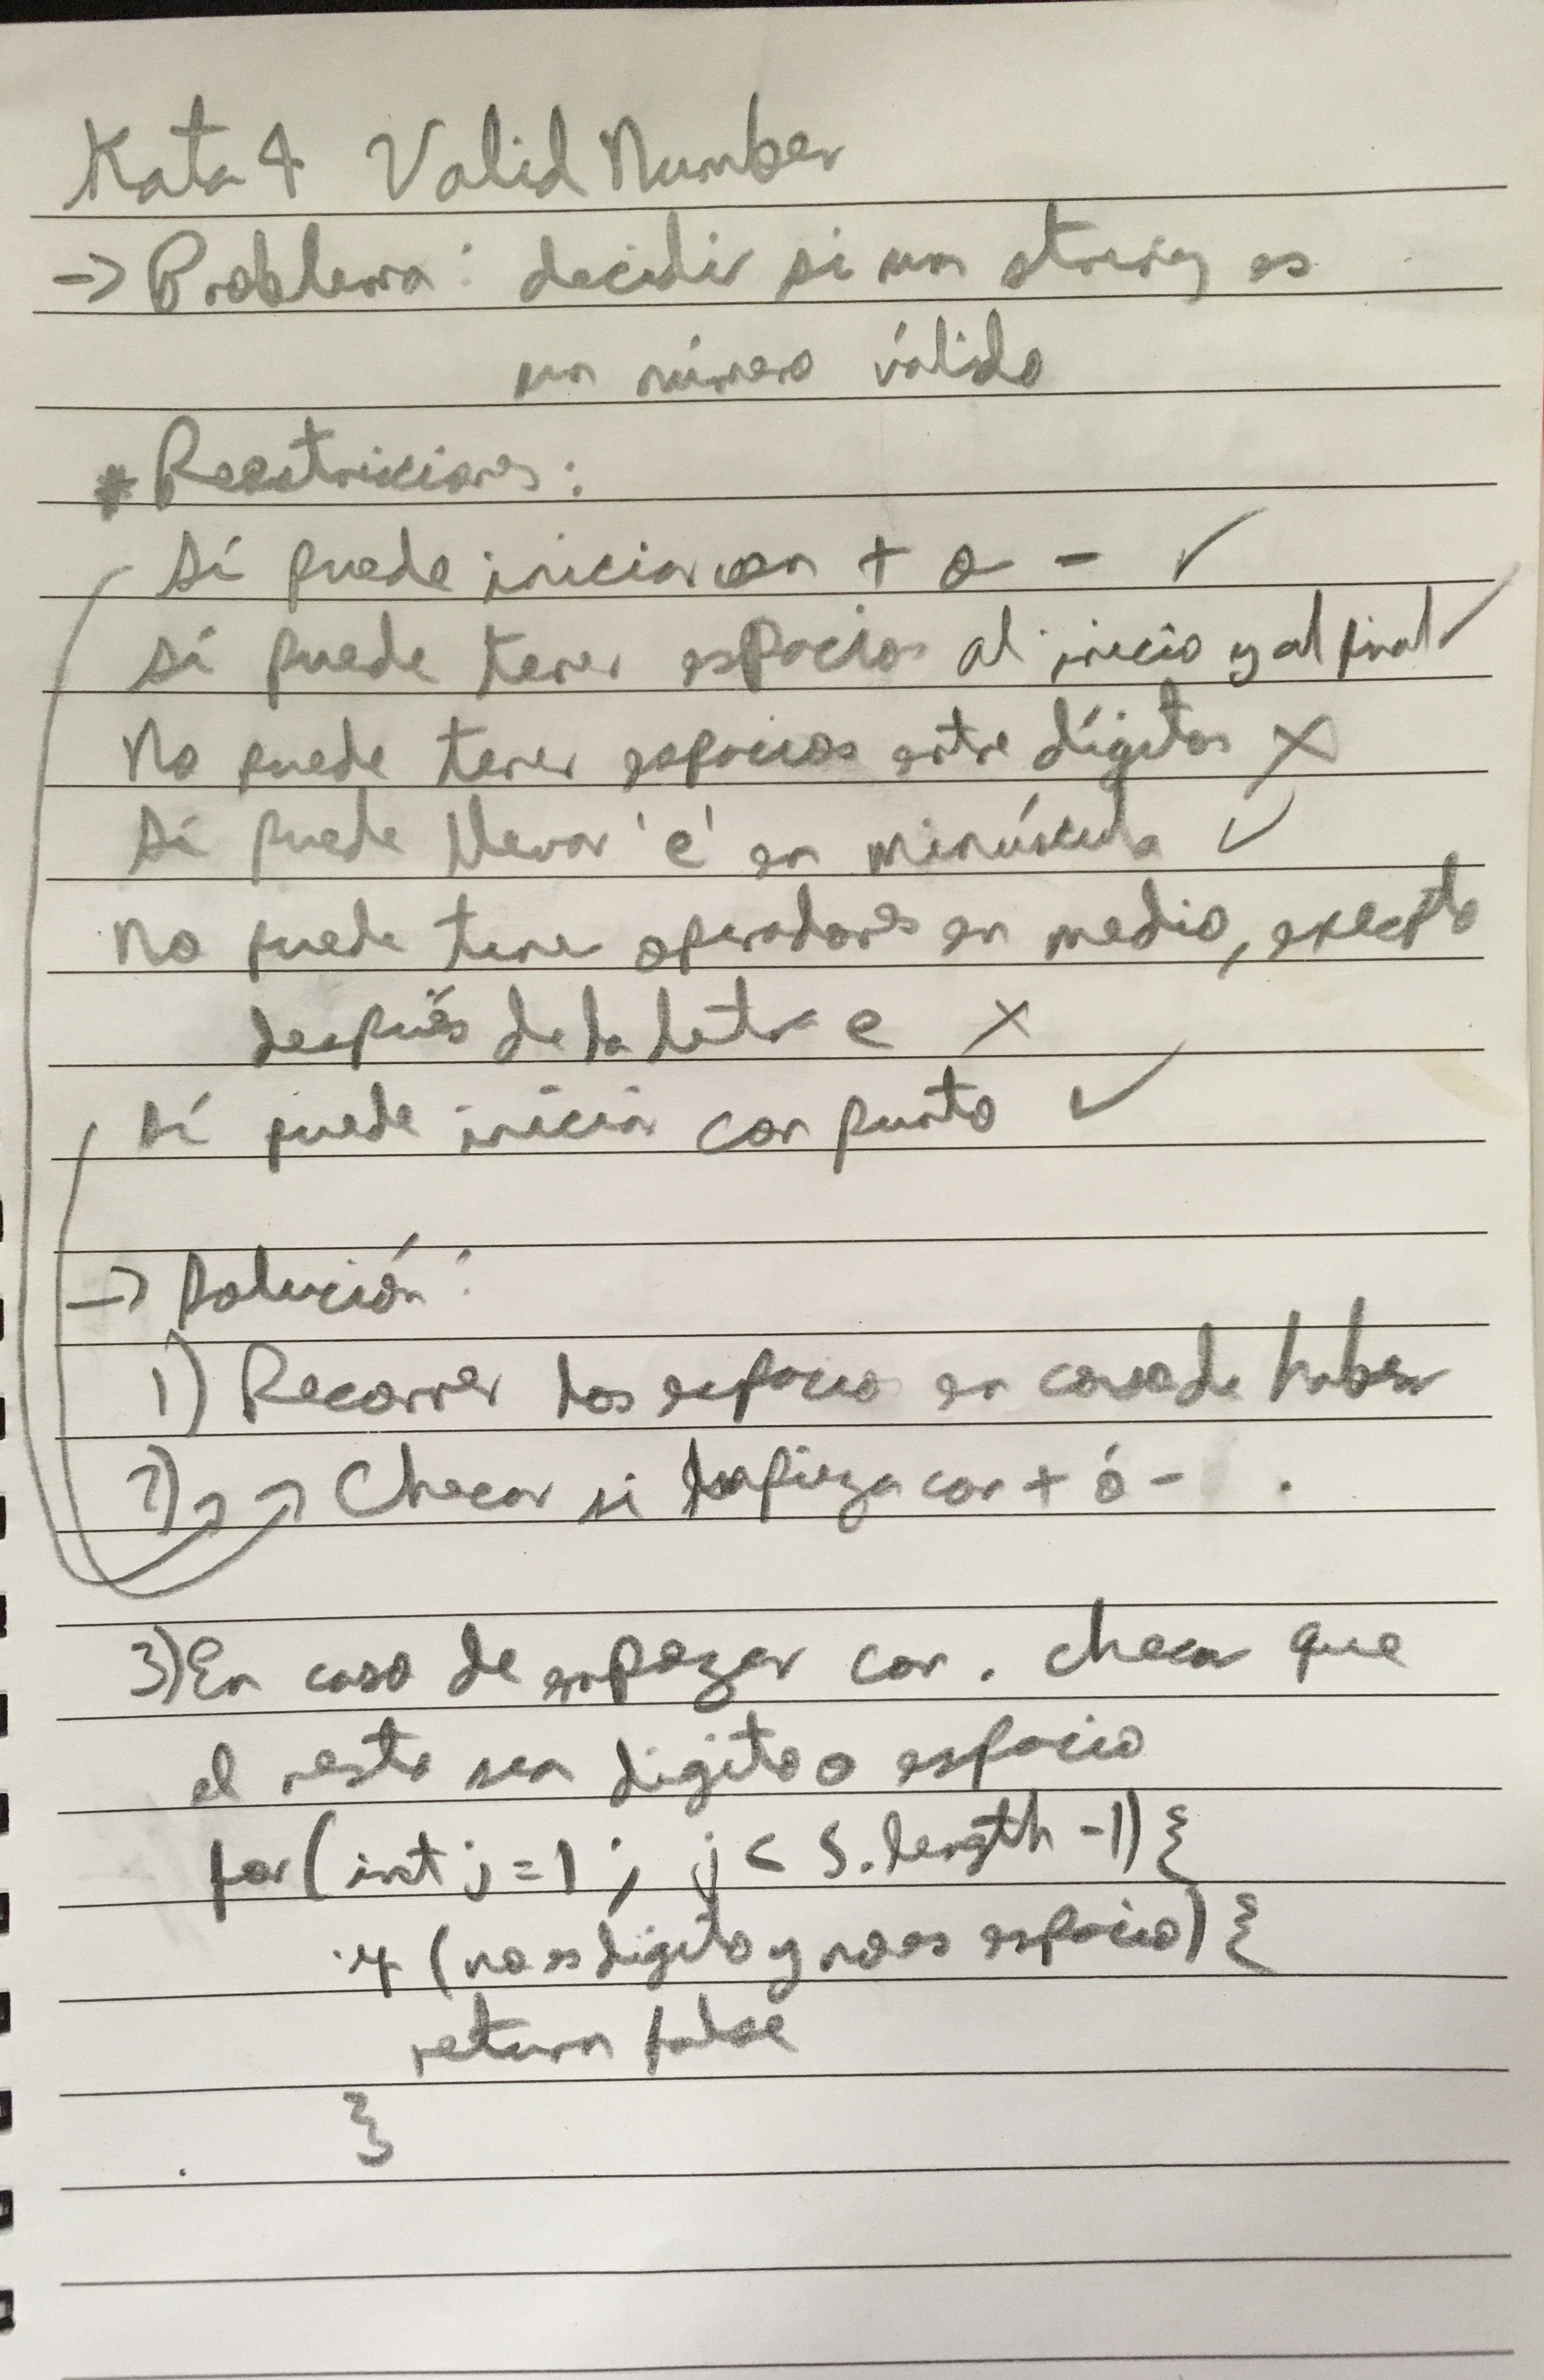 Kata 4 Valid Number
-> Problema: decidir si un string es
un número válido
* Restricciones:
Sí puede iniciar con + o - ✓
Sí puede tener espacios al inicio y al final ✓
No puede tener espacios entre dígitos X
Sí puede llevar 'e' en minúscula ✓
No puede tener operadores en medio, excepto
después de la letra e X
Sí puede iniciar con punto ✓
-> Solución:
1) Recorrer los espacio en caso de haber
2) Checar si empieza con + ó - .
3) En caso de empezar con . checar que
el resto sea digito o espacio
for(int j=1; j < s.length -1){
if (no es digito y no es espacio) {
return false
}